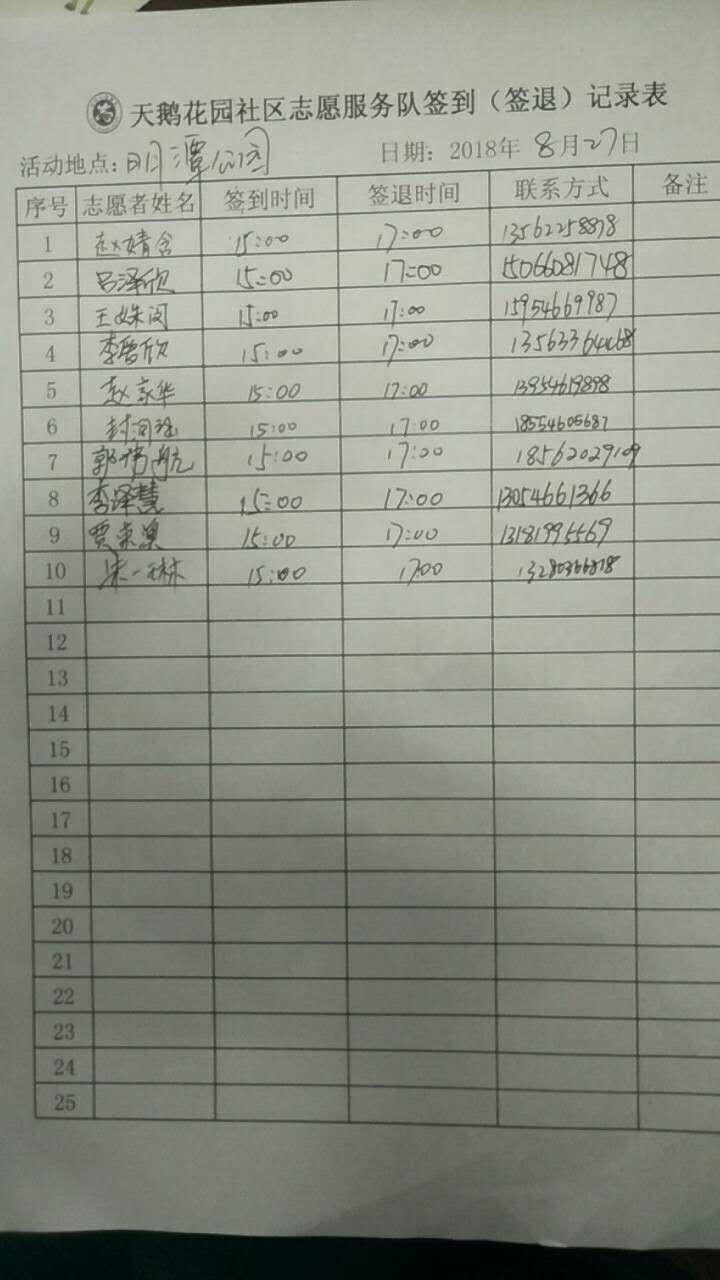 天鹅花园社区志愿服务队签到（签退）记录表
活动地点：明月潭公园 日期：2018年8月27日
序号 志愿者姓名 签到时间 签退时间 联系方式 备注
1 赵婧含 15:00 17:00 13562258878
2 吕泽欣 15:00 17:00 15066081748
3 王姝闵 15:00 17:00 15954669987
4 李晋欣 15:00 17:00
5 赵家华 15:00 17:00 13954619898
6 15:00 17:00 18554605687
7 郭伟航 15:00 17:00 18562029109
8 李泽慧 15:00 17:00 13054661366
9 贾 15:00 17:00 13181995569
10 宋一琳 15:00 17:00
11
12
13
14
15
16
17
18
19
20
21
22
23
24
25